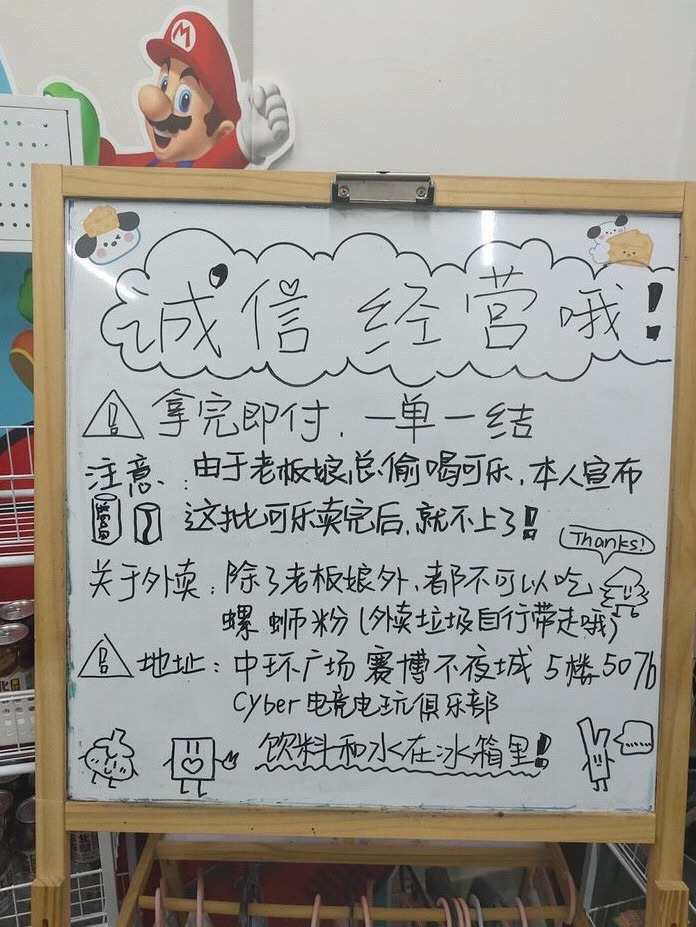 M
诚信 经营哦!
拿完即付, 一单一结
注意: 由于老板娘总偷喝可乐, 本人宣布
这批可乐卖完后, 就不上了!
Thanks!
关于外卖: 除了老板娘外, 都不可以吃
螺蛳粉 (外卖垃圾自行带走哦)
地址: 中环广场 赛博不夜城 5楼 507b
Cyber电竞电玩俱乐部
饮料和水在冰箱里!